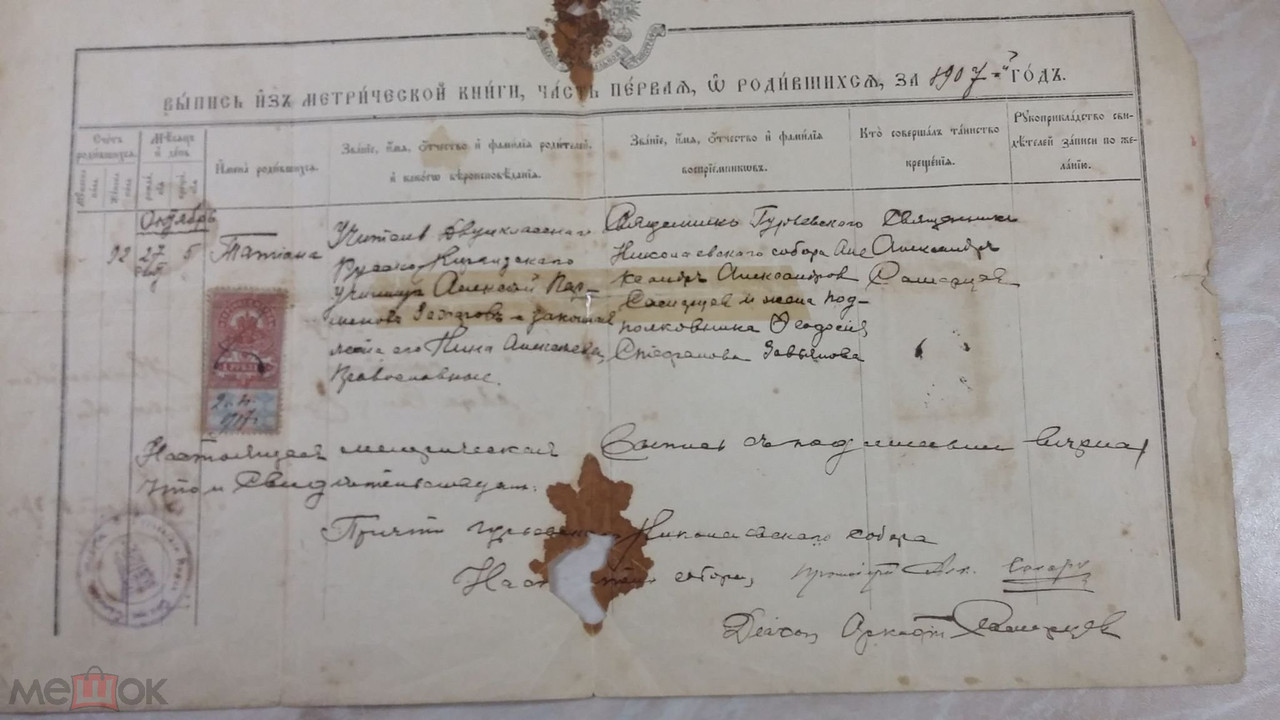 ВЫПИСЬ ИЗЪ МЕТРИЧЕСКОЙ КНИГИ, ЧАСТЬ ПЕРВАЯ, Ѡ РОДИВШИХСЯ, ЗА 1907 ГОДЪ.
Счетъ родившихся.
Мѣсяцъ и день
Имена родившихся.
Званіе, имя, отчество и фамилія родителей,
и какого вѣроисповѣданія.
Званіе, имя, отчество и фамилія
воспріемниковъ.
Кто совершалъ таинство
крещенія.
Рукоприкладство сви-
дѣтелей записи по же-
ланію.
Октябрь
92 27 5 Татіана
Учитель Двухкласнаго
Русско Киргизскаго
училища Алексѣй Пар-
меновъ Захаровъ и законная
жена его Нина Алексѣева,
Православные.
Священникъ Гурьевскаго
Николаевскаго собора Але
ксандръ Александров
Самарцев и жена под-
полковника Ѳеодосія
Стефанова Завьялова
Священникъ
Александръ
Самарцев
Настоящая метрическая выпись съ подлинным вѣрна,
что и свидѣтельствуетъ.
Причтъ Гурьевскаго Николаевскаго собора
собора, Протоіерей
Діакон Самарцев
мешок